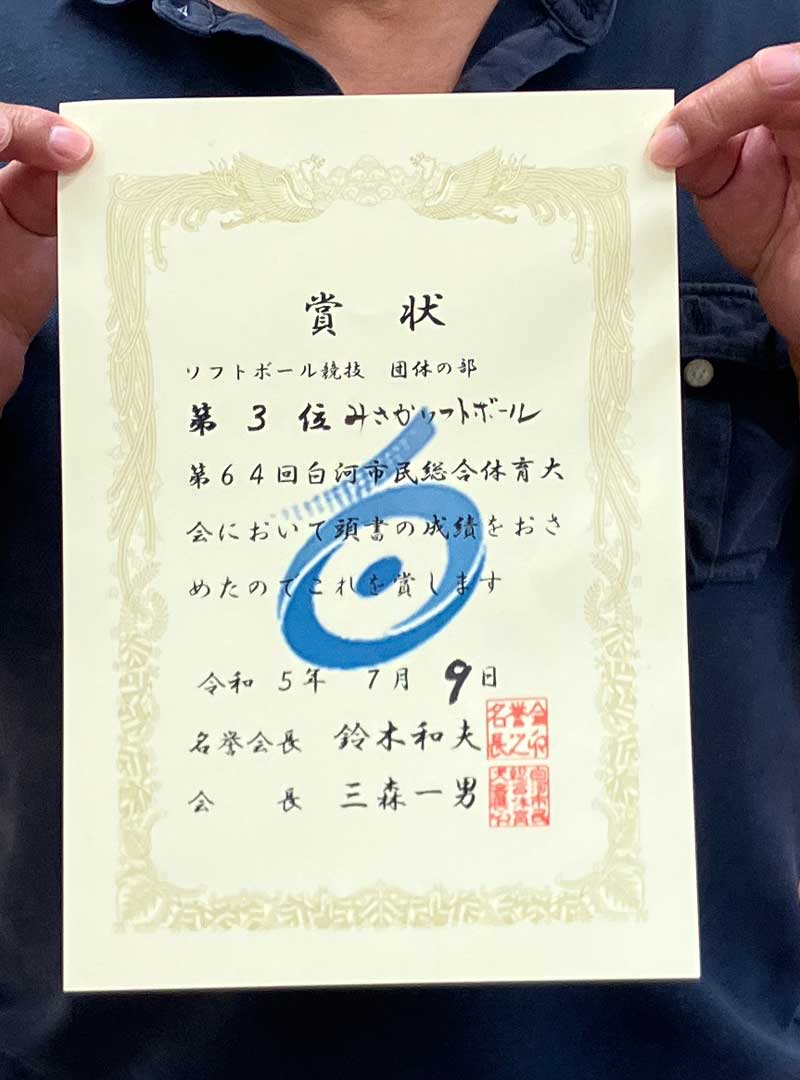 賞 状
ソフトボール競技 団体の部
第 3 位 みさかソフトボール
第64回白河市民総合体育大
会において頭書の成績をおさ
めたのでこれを賞します
令和 5年 7月 9日
名誉会長 鈴木和夫
会 長 三森一男